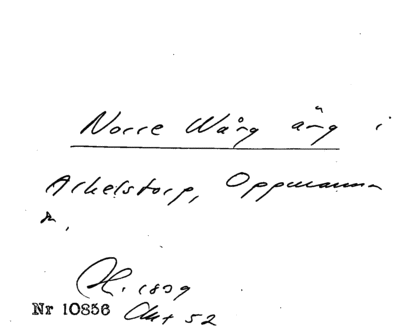 Norre Wång äng i
Arkelstorp, Oppmanna
sn.
H. 1839
Nr 10856 Akt 52